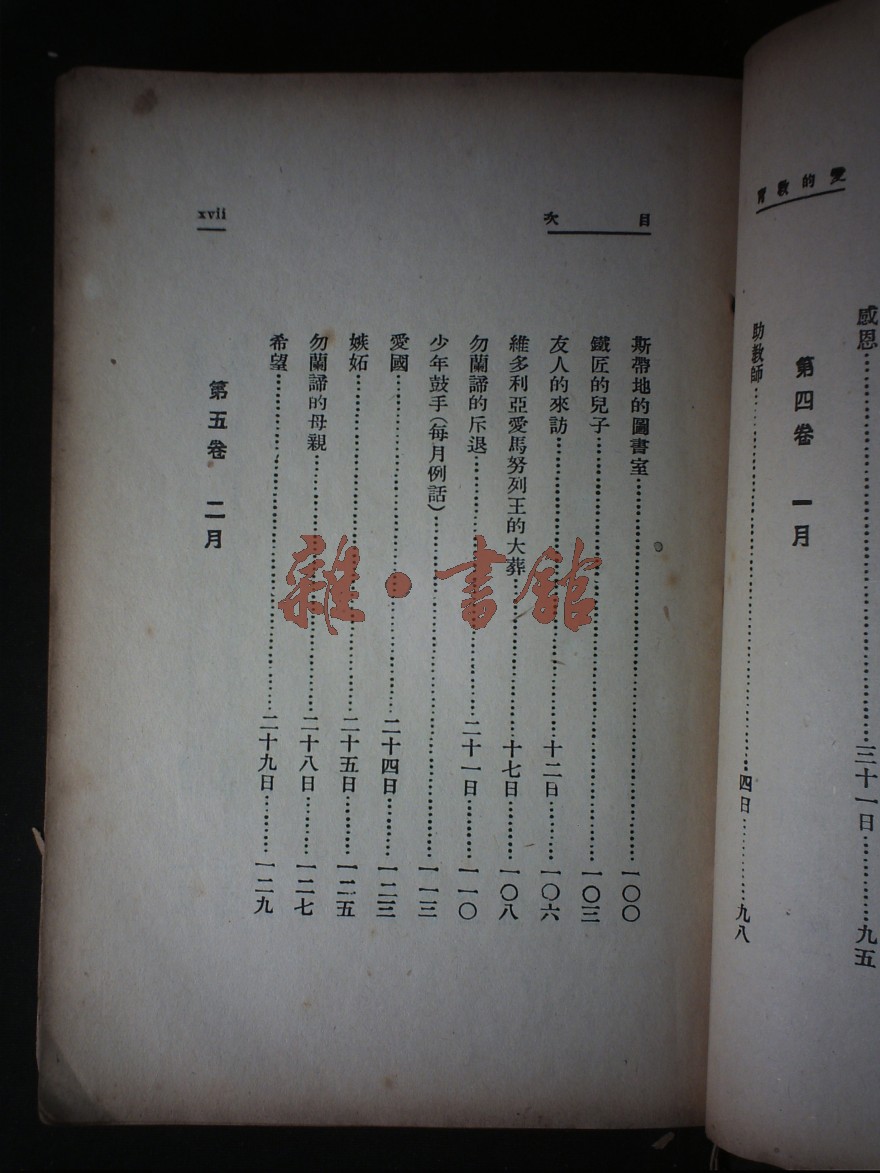 愛的教育
感恩……三十一日……九五
第四卷 一月
助教師……四日……九八
目次
斯帶地的圖書室……一〇〇
鐵匠的兒子……一〇三
友人的來訪……十二日……一〇六
維多利亞愛馬努列王的大葬……十七日……一〇八
勿蘭諦的斥退……二十一日……一一〇
少年鼓手(每月例話)……一一三
愛國……二十四日……一二三
嫉妬……二十五日……一二五
勿蘭諦的母親……二十八日……一二七
希望……二十九日……一二九
第五卷 二月
xvii
雜·書館